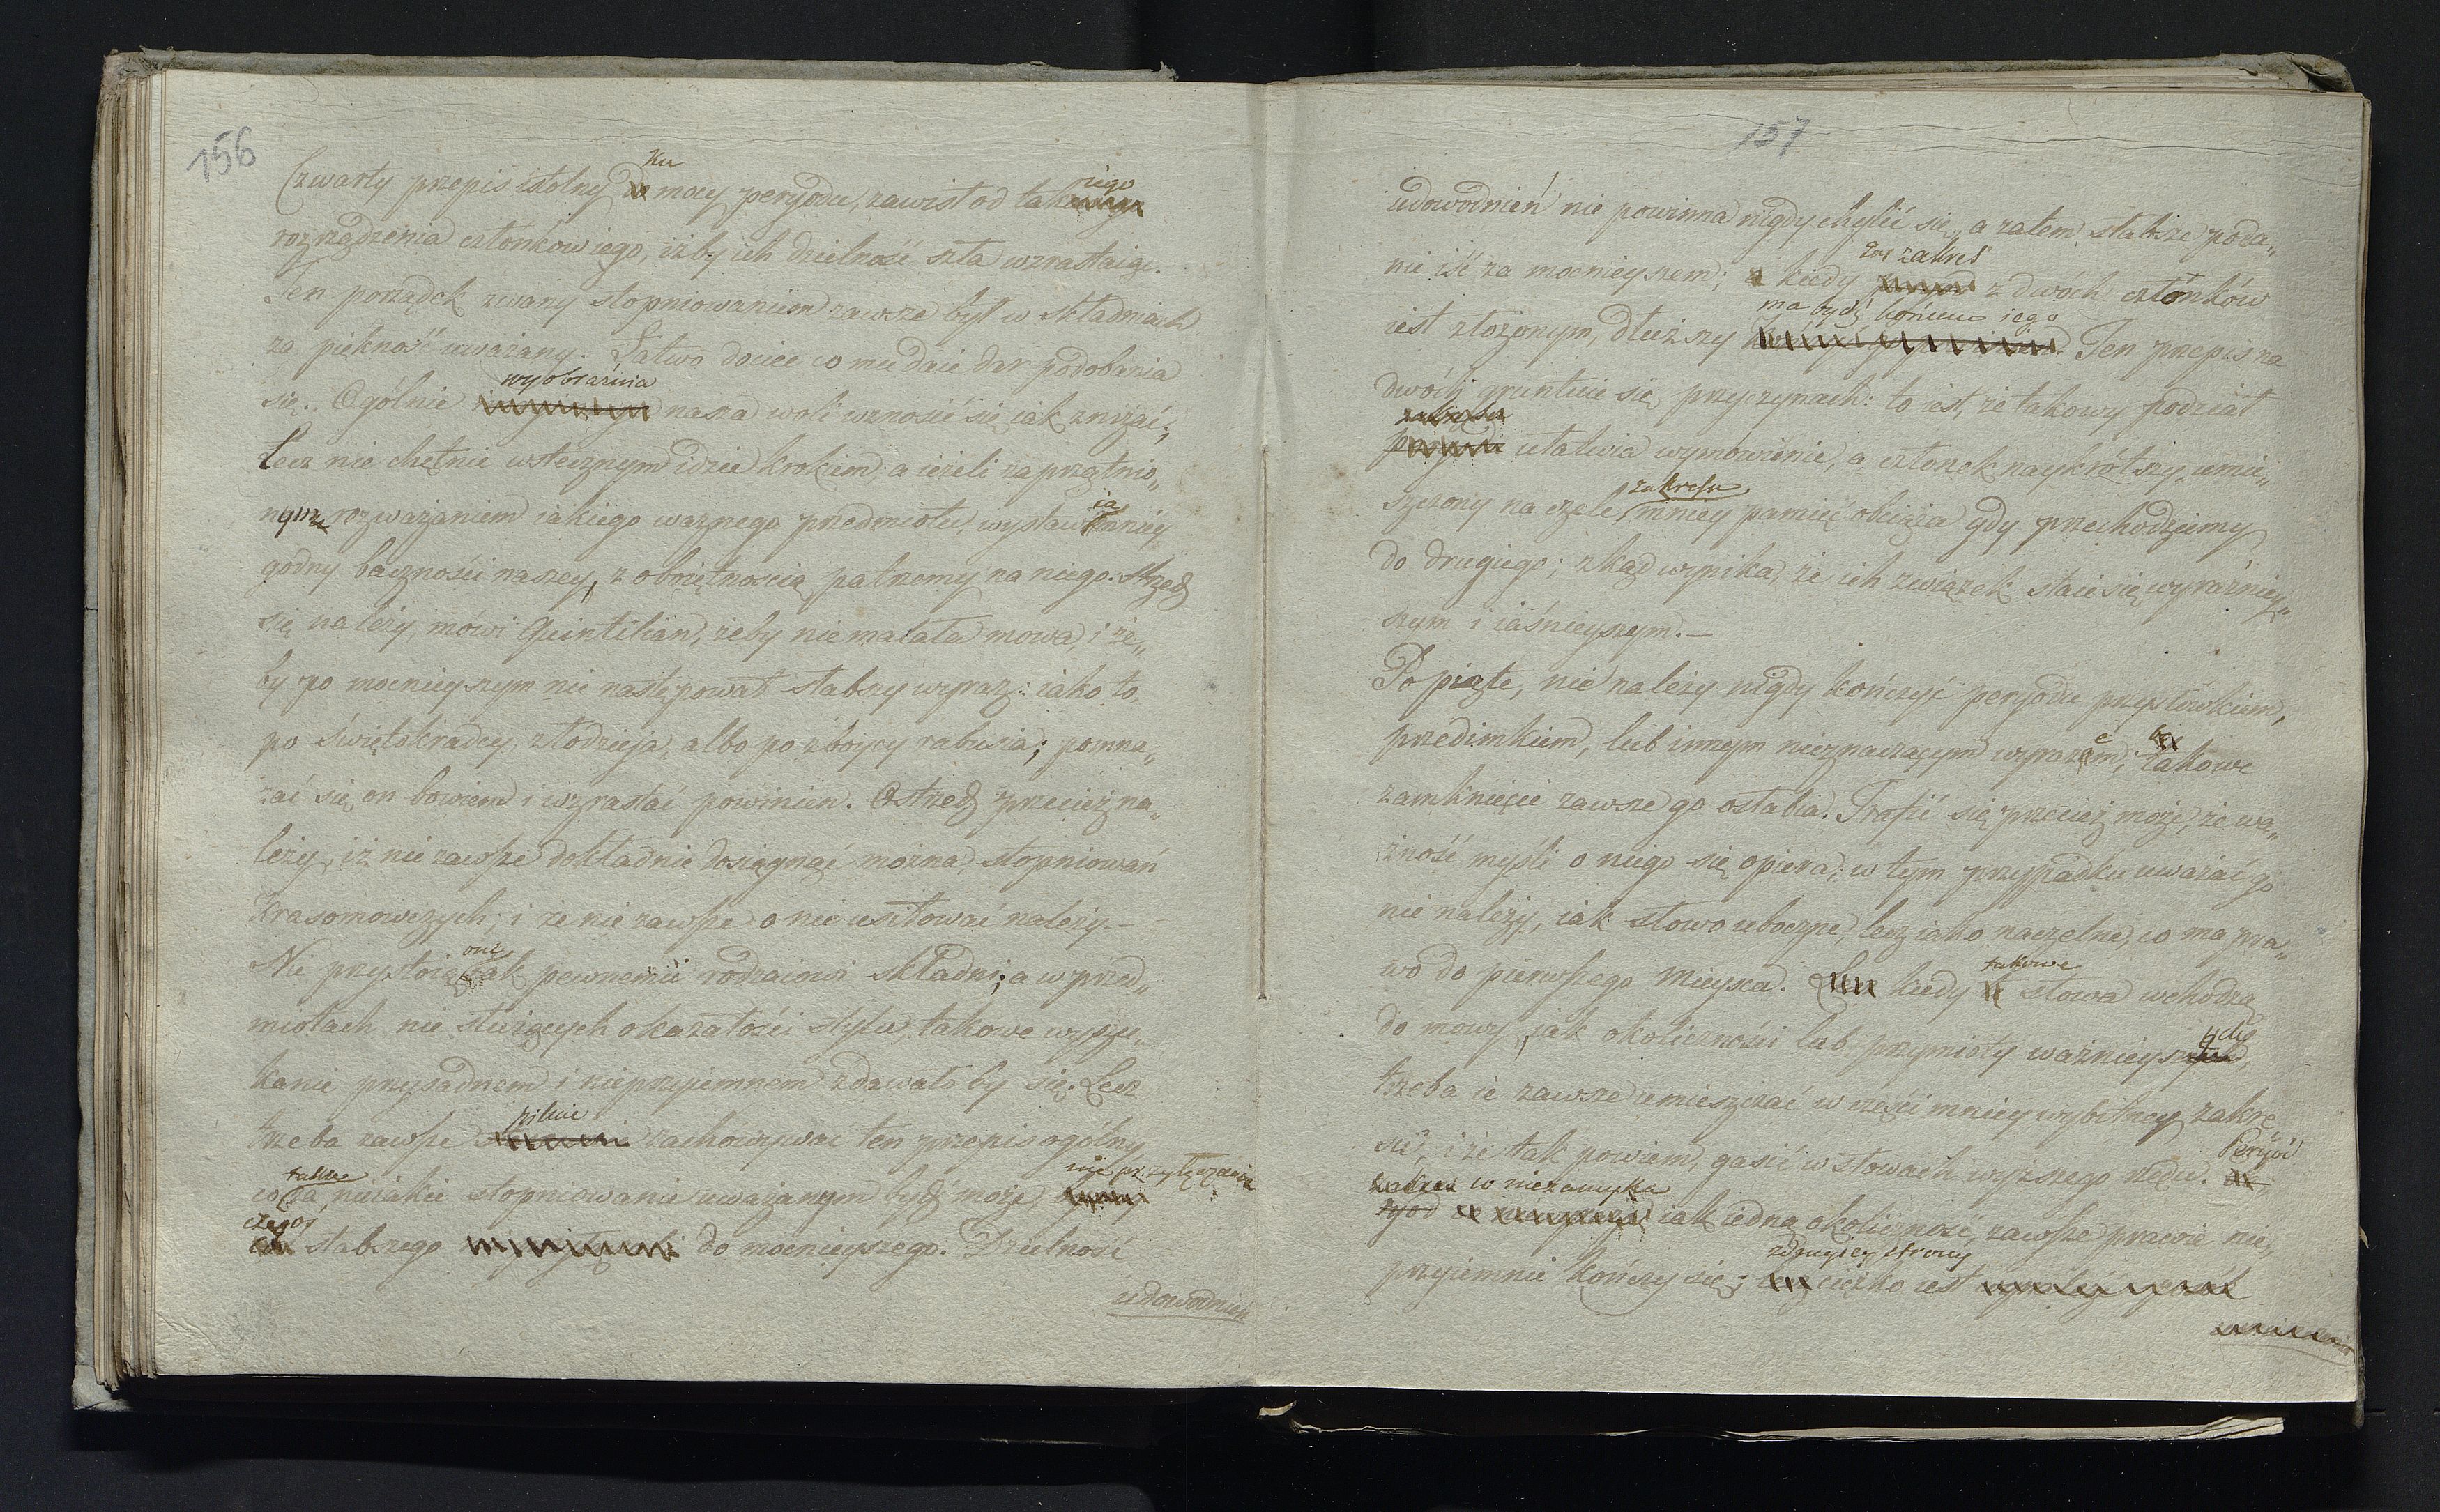 156
Czwarty przepis istolny ku mocy peryodu, zawisł od takiego
rozrządzenia członkow iego, iżby ich dzielność szła wzrastaiąc.
Ten porządek zwany stopniowaniem zawsze był w składniach
za piękność uważany. Łatwo dociec co mu daie dar podobania
się. Ogólnie wyobraźnia nasza woli wznosić się iak zniżać;
Lecz nie chętnie wstecznym idzie krokiem; a ieżeli zaprzątnio„
nym rozważaniem iakiego ważnego przedmiotu, wystawia mniey
godny baczności naszey, z obojętnością patrzemy na niego. Strzedz
się należy, mówi Quintilian, żeby nie malała mowa, i że„
by po mocnieyszym nie następował słabszy wyraz: iako to,
po świętokradcy, złodzieja, albo po zboycy rabusia; pomna„
żać się on bowiem i wzrastać powinien. Ostrzedz przecież na„
leży, iż nie zawsze dokładnie dosięgnąć można, stopniowań
Krasomowczych; i że nie zawsze o nie usiłować należy.—
Nie przystoią one iak pewnemu rodzaiowi składni; a w przed„
miotach nie służących okazałości stylu, takowe wyszu„
kanie przysadnem i nieprzyiemnem zdawałoby się. Lecz
trzeba zawsze pilnie zachowywać ten przepis ogólny
co za nieiakie stopniowanie uważanym bydź może, nie przyłączania
czegoś słabszego do mocnieyszego. Dzielność
udowodnień
157
udowodnień nie powinna nigdy chylić się, a zatem słabsze poda„
nie iść za mocnieyszem; kiedy zaś zakres z dwóch członków
iest złożonym, dłuższy ma bydź końcem iego. Ten przepis na
dwóch gruntuie się przyczynach: to iest, że takowy podział
ułatwia wymowienie, a członek naykrótszy, umie„
szczony na czele zakresu mniey pamięć obciąża gdy przechodziemy
do drugiego; zkąd wynika, że ich związek staie się wyraźniey„
szym i iaśnieyszym.—
Po piąte, nie należy nigdy kończyć peryodu przysłówkiem,
przedimkiem, lub innym nieznaczącym wyrazem; bo takowe
zamknięcie zawsze go osłabia. Trafić się przecież może, że wa„
żność myśli o niego się opiera; w tym przypadku uważać go
nie należy, iak słowo uboczne, lecz iako naczelne, co ma pra„
wo do pierwszego mieysca. kiedy takowe słowa wchodzą
do mowy, iak okoliczności lub przymioty ważnieyszych,
trzeba ie zawsze umieszczać w części mniey wybitney zakre„
su, i że tak powiem, gasić w słowach wyższego rzędu. Peryod
w nie zamyka iak iedną okoliczność, zawsze prawie nie„
przyiemnie kończy się; z drugiey strony ciężko iest